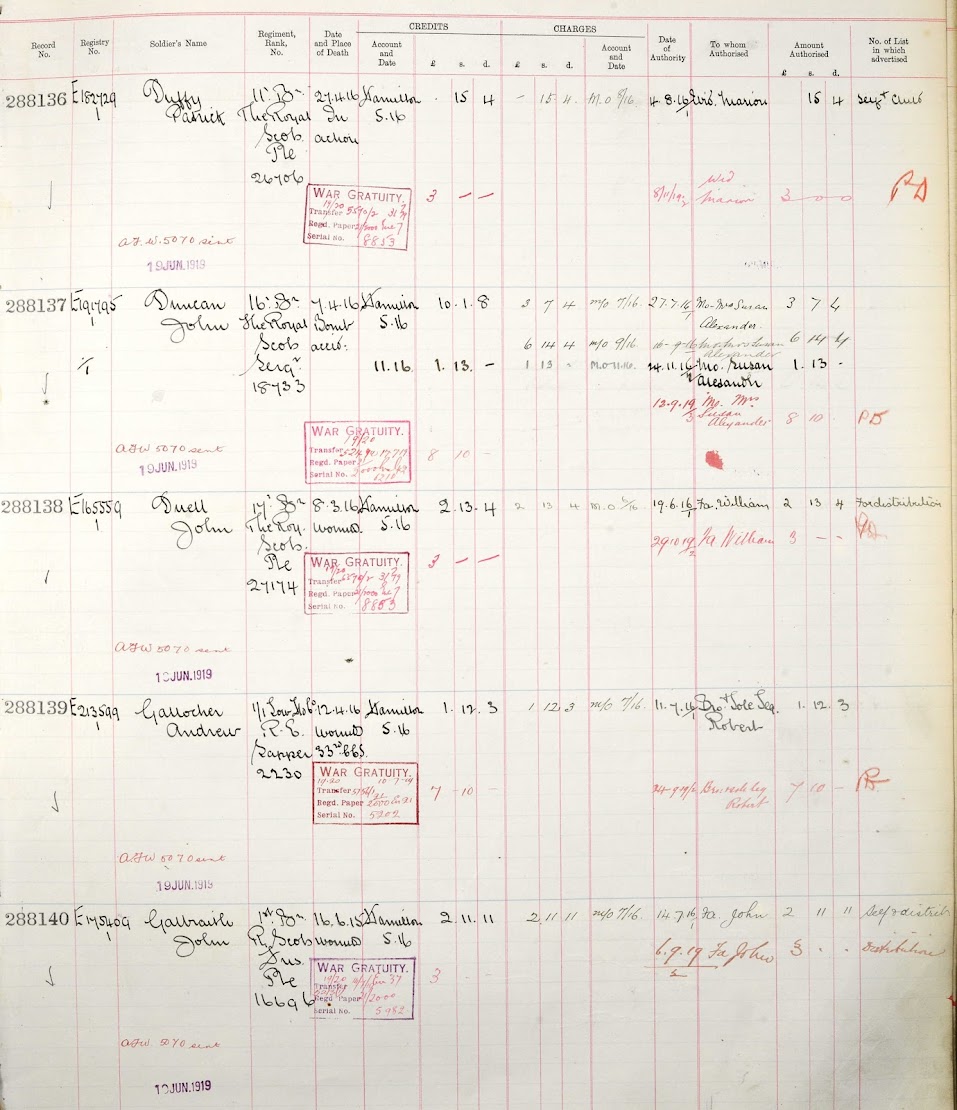 CREDITS CHARGES
Record No. Registry No. Soldier's Name Regiment, Rank, No. Date and Place of Death Account and Date £ s. d. £ s. d. Account and Date Date of Authority To whom Authorised Amount Authorised £ s. d. No. of List in which advertised
288136 E182729 Duffy 11 Bn 27.4.16 Hamilton . 15 4 - 15 4. M.O 8/16 4.8.16 Wid. Marion 15 4 Self & Child
1 Patrick The Royal In 5.16
Scots action
Pte
26706
WAR GRATUITY. 3 - - 8/11/19 Wid Marion 3 - 0 - 0 PD
19/20
Transfer 5590/2
Regd. Paper
Serial No. 8853
A.F.W. 5070 sent
19 JUN. 1919
288137 E191795 Duncan 16 Bn 7.4.16 Hamilton 10. 1. 8 3 7 4 m/o 7/16. 27.7.16 Mo. Mrs Susan 3 7 4
1 John The Royal Bomb 5.16 Alexander.
Scots accid. 6 14 4 m/o 9/16 Mo Mrs Susan 6 14 4
Alexander
Sergt 11.16. 1. 13. - 1 13 - M.O 11.16. 24.11.16 Mo. Susan 1. 13 -
18733 Alexander
12.9.19 Mo. Mrs
Susan
Alexander 8 10 . PD
WAR GRATUITY. 8 10 -
19/20
Transfer
Regd. Paper
Serial No.
A.F.W 5070 sent
19 JUN. 1919
288138 E165559 Duell 17 Bn 8.3.16 Hamilton 2. 13. 4 2 13 4 M.O 6/16. 19.6.16 Fa. William 2 13 4 For distribution
1 John The Roy. wounds 5.16
Scots.
Pte
27174
29.10.19 Fa William 3 - -
WAR GRATUITY. 3 - -
19/20
Transfer
Regd. Paper
Serial No. 8853
A.F.W 5070 sent
19 JUN. 1919
288139 E213599 Gallocher 1/1 Low. 12.4.16 Hamilton 1. 12. 3 1 12 3 m/o 7/16. 11.7.16 Bro. & Sole Leg. 1. 12. 3
1 Andrew R.E. wounds 5.16 Robert
Sapper 33rd CCS.
2230
WAR GRATUITY. 7 - 10 - Bro. sole leg 7 10 -
Robert
19-20 10-7-19
Transfer
Regd. Paper
Serial No. 5202
A.F.W 5070 sent
19 JUN. 1919
288140 E175409 Galbraith 1st Bn 16.6.15 Hamilton 2. 11. 11 2. 11 11 m/o 7/16. 14.7.16 Fa. John 2 11 11 Self & distrib
1 John R. Scots wounds 5.16 6.9.19 Fa John 3 . . distribution
Fus.
Pte
16696
WAR GRATUITY. 3 - -
19/20
Transfer
Regd Paper 2/2000
Serial No. 5982
A.F.W. 5070 sent
19 JUN. 1919